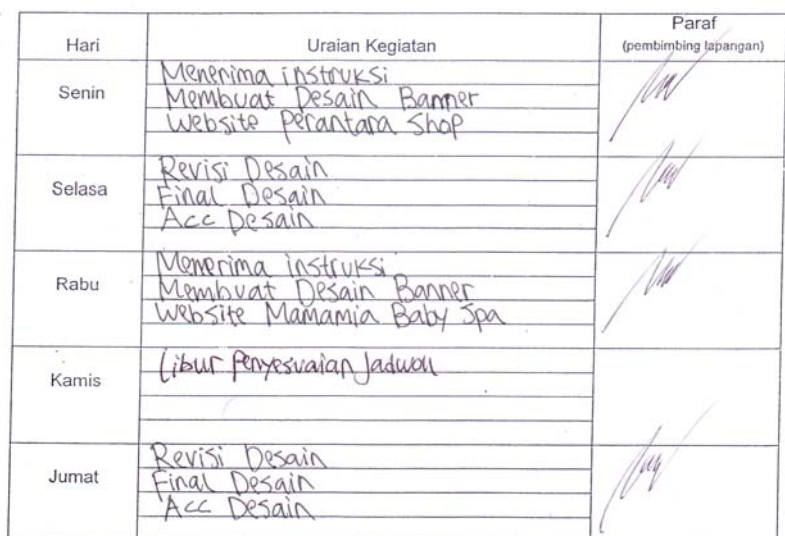 Hari Uraian Kegiatan Paraf
(pembimbing lapangan)
Senin
Menerima instruksi
Membuat Desain Banner
Website Perantara Shop
Selasa
Revisi Desain
Final Desain
Acc Desain
Rabu
Menerima instruksi
Membuat Desain Banner
Website Mamamia Baby Spa
Kamis
Libur Penyesuaian Jadwal
Jumat
Revisi Desain
Final Desain
Acc Desain